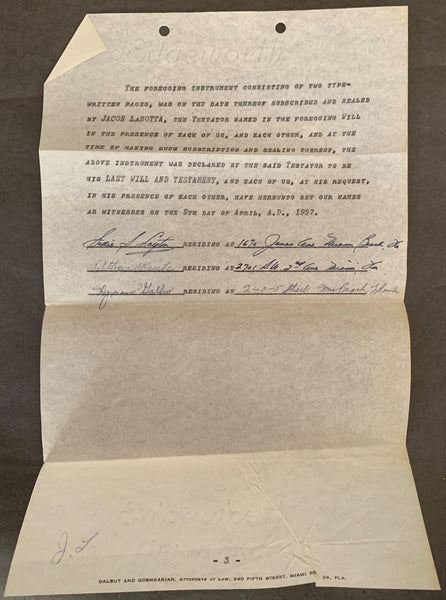 THE FOREGOING INSTRUMENT CONSISTING OF TWO TYPE-
WRITTEN PAGES, WAS ON THE DATE THEREOF SUBSCRIBED AND SEALED
BY JACOB LAMOTTA, THE TESTATOR NAMED IN THE FOREGOING WILL
IN THE PRESENCE OF EACH OF US, AND EACH OTHER, AND AT THE
TIME OF MAKING SUCH SUBSCRIPTION AND SEALING THEREOF, THE
ABOVE INSTRUMENT WAS DECLARED BY THE SAID TESTATOR TO BE
HIS LAST WILL AND TESTAMENT, AND EACH OF US, AT HIS REQUEST,
IN HIS PRESENCE OF EACH OTHER, HAVE HEREUNTO SET OUR NAMES
AS WITNESSES ON THE 9TH DAY OF APRIL, A.D., 1957.
RESIDING AT 1670 James Ave Miami Beach, Fla
RESIDING AT 2701 S.W. 2nd Ave Miami Fla
Hyman Galbut RESIDING AT 240-5 Street Mia Beach Florida
J. L.
- 3 -
GALBUT AND ATTORNEYS AT LAW, 240 FIFTH STREET, MIAMI BE 39, FLA.